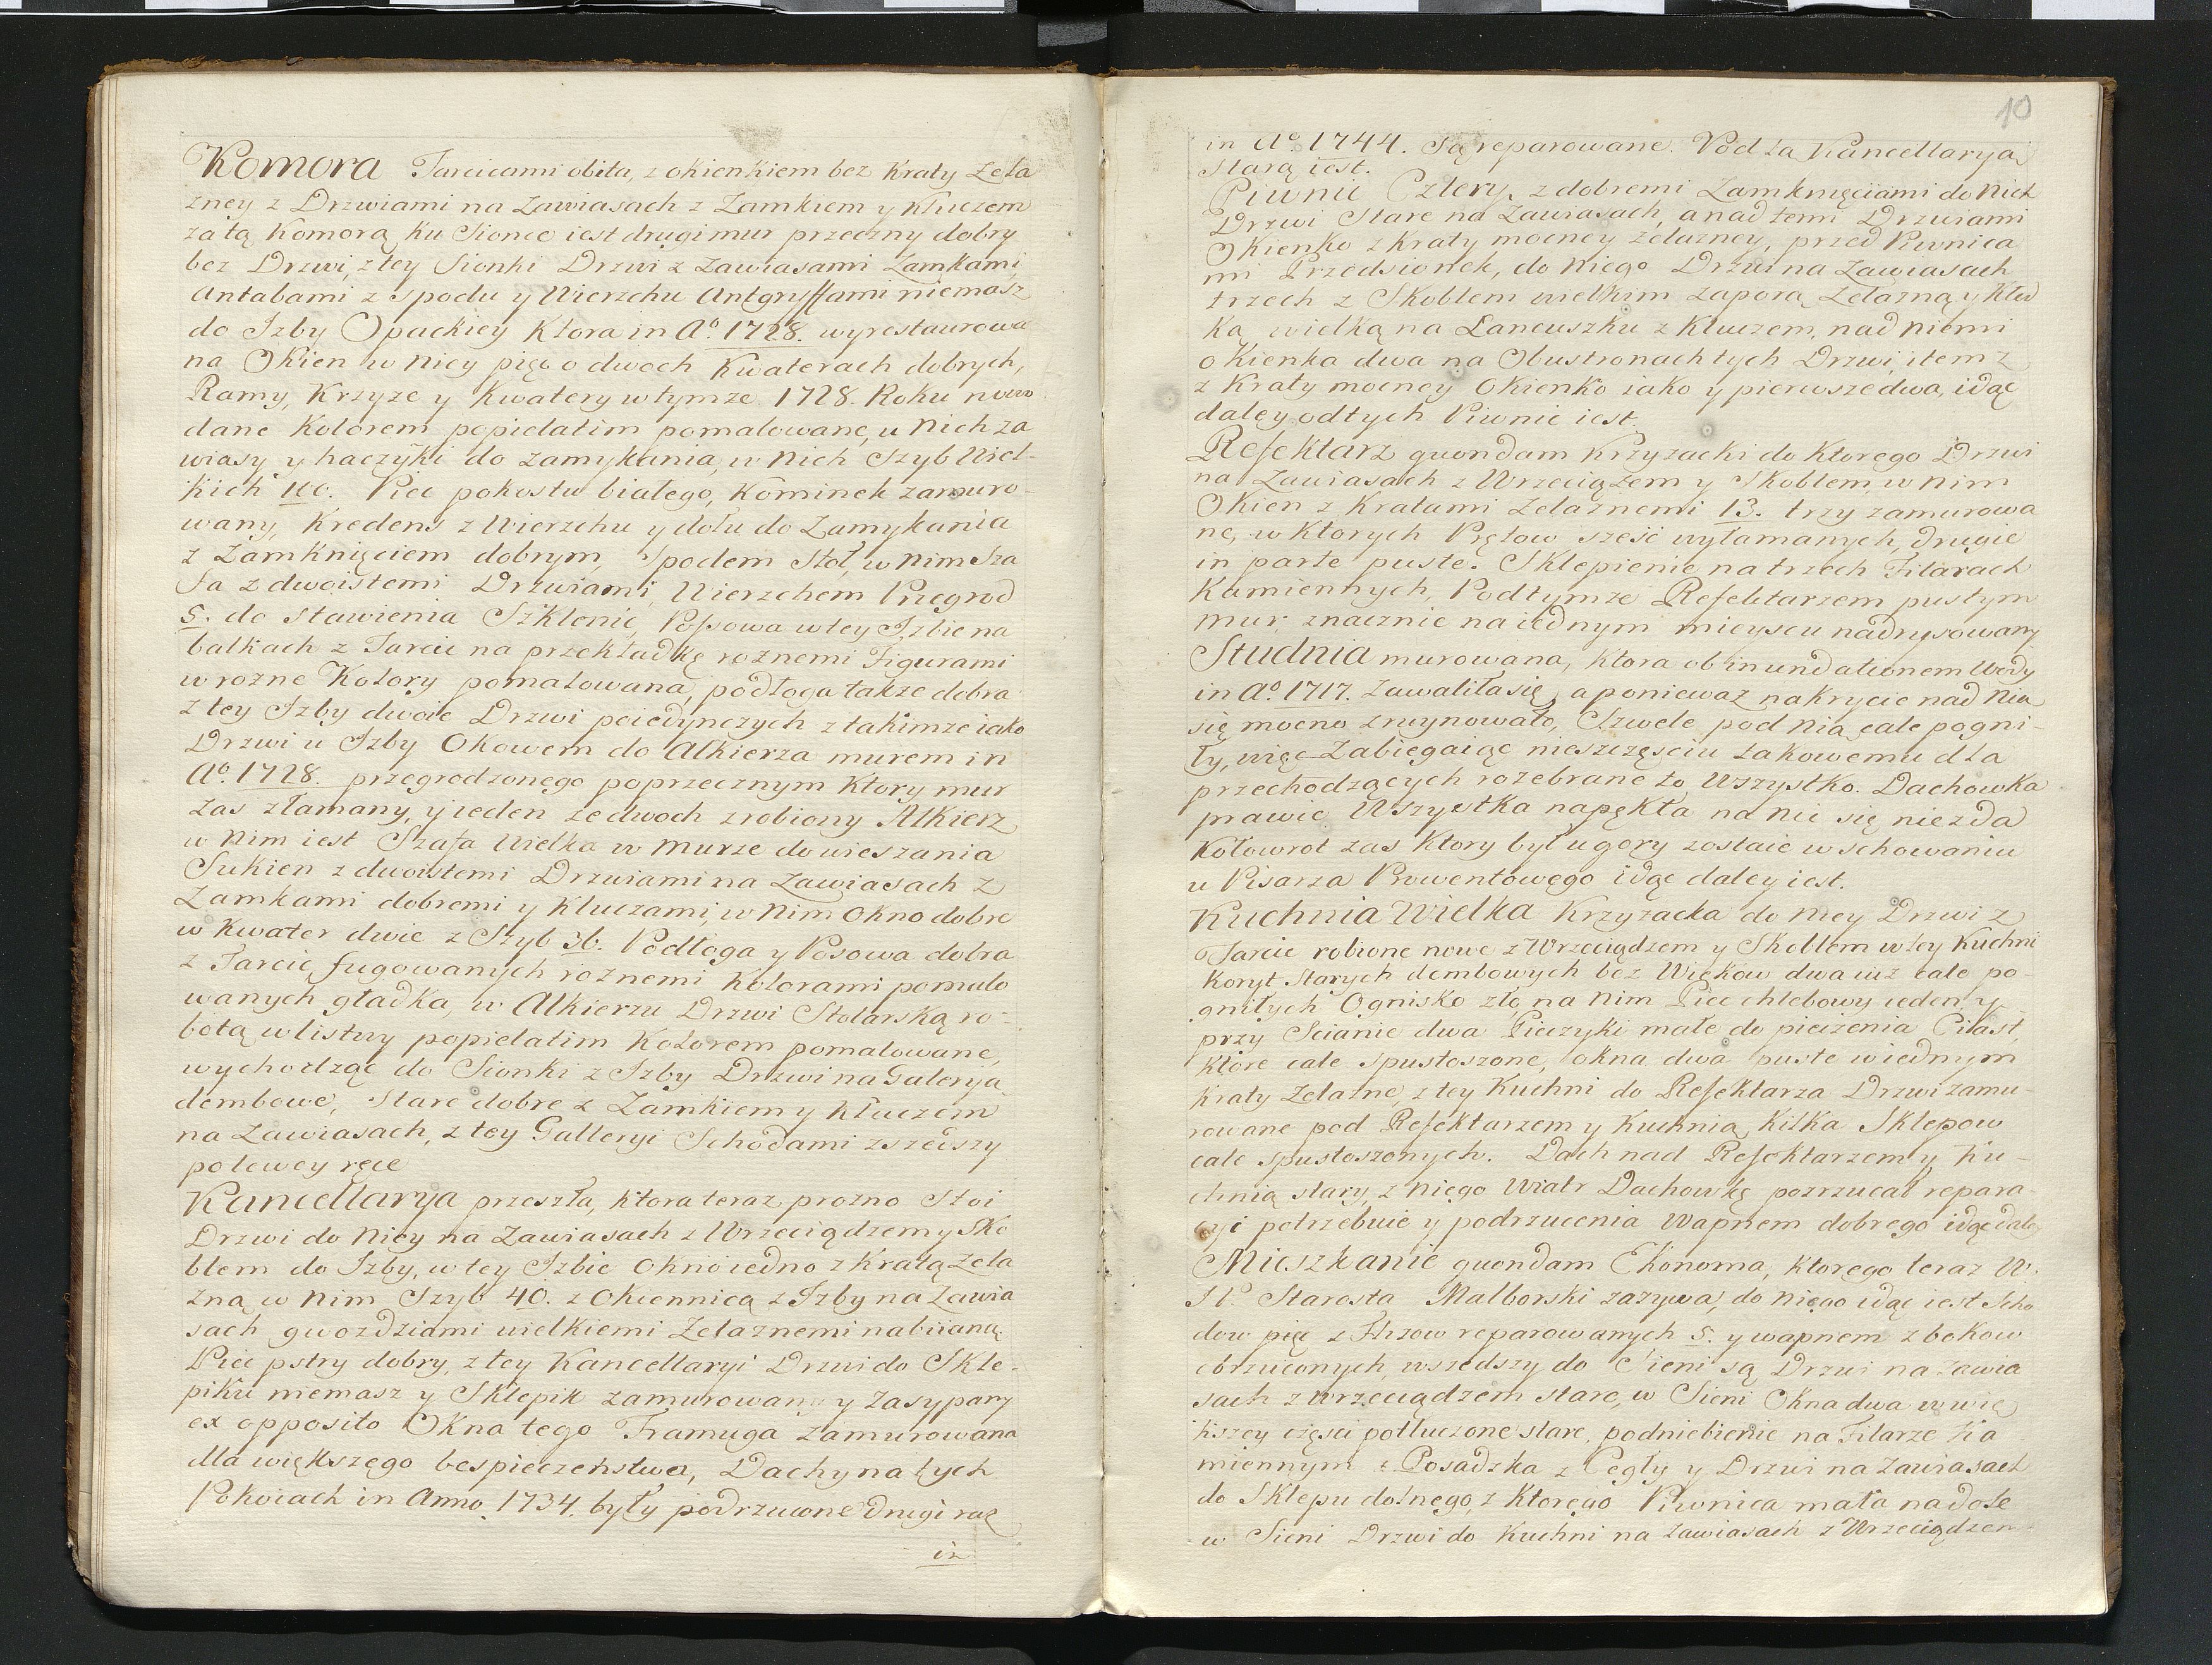 Komora Tarcicami obita, z okienkiem bez Kraty Zela
zney z Drzwiami na Zawiasach z Zamkiem y kluczem
za tą Komorą ku Sionce iest drugi mur przeczny dobry
bez Drzwi, z tey Sionki Drzwi z Zawiasami Zamkami,
Antabami z spodu y Wierzchu Antgryffami niemasz
do Izby Opackiey Ktora in Aº. 1728. wyrestaurowa
na Okien w Niey pięc o dwoch Kwaterach dobrych,
Ramy, Krzyze y Kwatery w tymze 1728. Roku nowo
dane Kolorem popielatim pomalowane, u Nich za
wiasy y haczyki do zamykania, w Nich Szyb Wiel-
kich 100. Piec pokostu bialego, Kominek zamuro-
wany, Kredens z Wierzchu y dołu do Zamykania
z Zamknięciem dobrym, Spodem Stoł, w nim Sza
fa z dwoistemi Drzwiami, Wierzchem Przegrod
5. do stawienia Szklenic, Possowa w tey Izbie na
balkach z Tarcic na przekładkę roznemi Figurami
w rozne Kolory pomalowana, podłoga takze dobra
z tey Izby dwoie Drzwi poiedynczych z takimze iako
Drzwi u Izby Okowem do Alkierza murem in
Aº. 1728. przegrodzonego poprzecznym Ktory mur
zas złamany, y ieden ze dwoch zrobiony Alkierz
w Nim iest Szafa Wielka w Murze do wieszania
Sukien z dwoistemi Drzwiami na Zawiasach z
Zamkami dobremi y Kluczami, w Nim Okno dobre
w Kwater dwie z Szyb 36. Podłoga y Posowa dobra
z Tarcic fugowanych roznemi Kolorami pomalo
wanych gładka, w Alkierzu Drzwi Stolarską ro-
botą w listwy popielatim Kolorem pomalowane,
wychodząc do Sionki z Izby Drzwi na Galeryą
dembowe, stare dobre z Zamkiem y Kluczem
na Zawiasach, z tey Galleryi Schodami zszedszy
po lewey ręce
Kancellarya przeszła, Ktora teraz prozno Stoi
Drzwi do Niey na Zawiasach z Wrzeciądzem y Sko
blem do Izby, w tey Izbie Okno iedno z Kratą zela
zną w Nim Szyb 40. z Okiennicą z Izby na Zawia
sach gwozdziami wielkiemi Zelaznemi nabiianą,
Piec pstry dobry, z tey Kancellaryi Drzwi do Skle-
piku niemasz y Sklepik zamurowany y Zasypany
ex opposito Okna tego Framuga zamurowana
dla większego bespieczeństwa, Dachy na tych
Pokoiach in Anno 1734. były podrzucone drugi raz
in
10
in Aº. 1744. Są reparowane. Pod tą Kancellaryą
starą iest.
Piwnic Cztery, z dobremi Zamknięciami do Nich
Drzwi Stare na Zawiasach, a nad temi Drzwiami
Okienko z Kraty mocney zelazney, przed Piwnica
mi Przedsionek, do Niego Drzwi na Zawiasach
trzech z Skoblem wielkim zaporą Zelazną y Kłod
ką wielką na Lancuszku z Kluczem, nad niemi
okienka dwa na Obustronach tych Drzwi, item z
z Kraty mocney Okienko iako y pierwsze dwa, idąc
daley od tych Piwnic iest.
Refektarz quondam Krzyzacki do Ktorego Drzwi
na Zawiasach z Wrzeciązem y Skoblem, w nim
Okien z Kratami Zelaznemi 13. trzy zamurowa
ne, w Ktorych Prętow sześć wyłamanych, drugie
in parte puste. Sklepienie na trzech Filarach
Kamiennych, Podtymze Refektarzem pustym
mur znacznie na iednym mieyscu nadrysowany
Studnia murowana, Ktora ob inundationem Wody
in Aº. 1717. Zawaliła się, a poniewaz nakrycie nad Nią
się mocno zruynowało, Szwele pod Nią cale pogni-
ły, więc zabiegaiąc nieszczęsciu iakowemu dla
przechodzących rozebrane to Wszystko. Dachowka
prawie Wszystka napękła na nic się niezda
Kołowrot zas Ktory był u gory zostaie w schowaniu
u Pisarza Prowentowego idąc daley iest.
Kuchnia Wielka Krzyzacka do Niey Drzwi z
Tarcic robione nowe z Wrzeciądzem y Skoblem w tey Kuchni
Koryt Starych dembowych bez Wiekow dwa iuz cale po-
gniłych Ognisko złe, na Nim Piec chlebowy ieden y
przy Scianie dwa Pieczyki małe do pieczenia Ciast,
Ktore cale spustoszone, Okna dwa puste w iednym
Kraty Zelazne, z tey Kuchni do Refektarza Drzwi zamu-
rowane pod Refektarzem y Kuchnią Kilka Sklepow
cale spustoszonych. Dach nad Refektarzem y Ku-
chnią stary, z niego Wiatr Dachowkę pozrzucał repara-
cyi potrzebuie y podrzucenia Wapnem dobrego idąc daley
Mieszkanie quondam Ekonoma, Ktorego teraz W.
I P. Starosta Malborski zazywa, do Niego idąc iest Scho
dow pięc z Flizow reparowanych 5. y wapnem z bokow
obrzuconych, wszedszy do Sieni są Drzwi na zawia
sach z wrzeciądzem stare, w Sieni Okna dwa w wię
kszey części potłuczone stare, podniebienie na Filarze Ka
miennym Posadzka z Cegły y Drzwi na Zawiasach
do Sklepu dolnego, z Ktorego Piwnica mała na dole
w Sieni Drzwi do Kuchni na Zawiasach z Wrzeciądzem